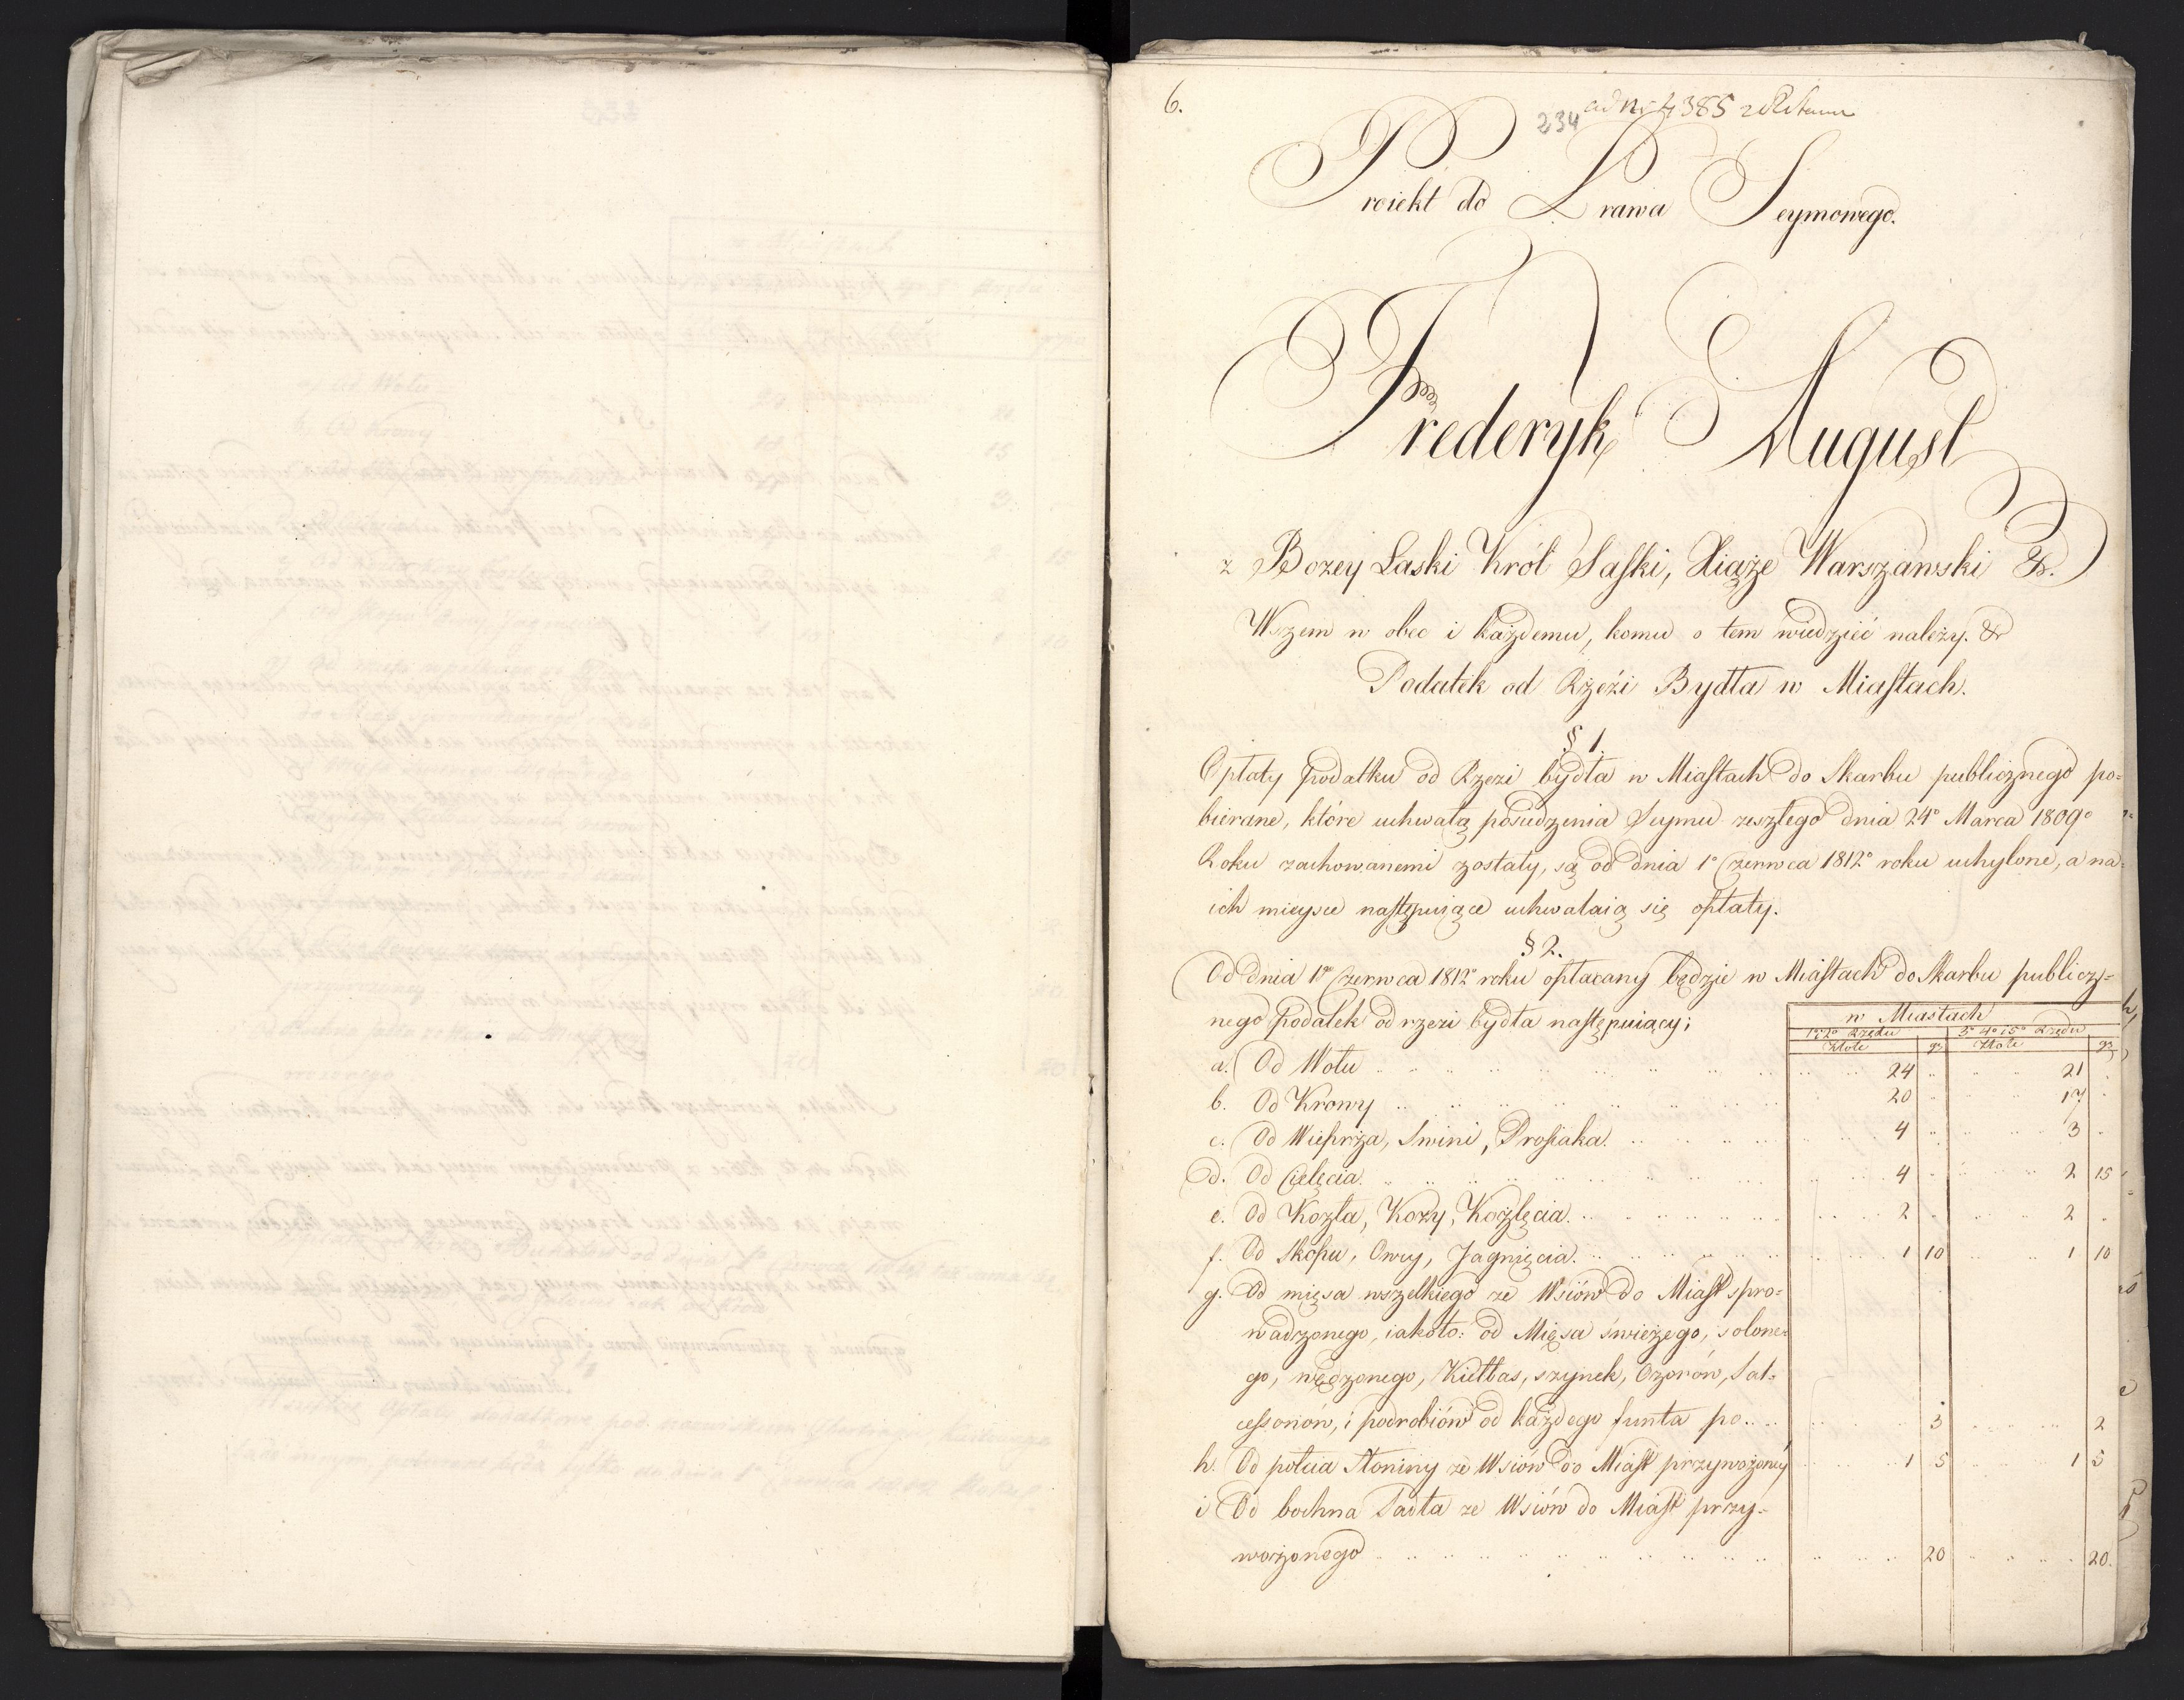 6.
234 ad Nr 4385
Proiekt do Prawa Seymowego.
Frederyk August
z Bozey Laski Król Saski, Xiąże Warszawski &.
Wszem w obec i każdemu, komu o tem wiedzieć należy. &
Podatek od Rzeźi Bydła w Miastach.
§ 1.
Opłaty podatku od Rzezi bydła w Miastach do Skarbu publicznego po=
bierane, które uchwałą posiedzenia Seymu zeszłego dnia 24o Marca 1809o
Roku zachowanemi zostały, są od dnia 1o Czerwca 1812o roku uchylone, a na=
ich mieysce następuiące uchwalaią się opłaty.
§ 2.
Od dnia 1go Czerwca 1812o roku opłacany będzie w Miastach do Skarbu publicz=
nego podatek od rzezi bydła następuiący;
w Miastach
1o i 2o Rzędu | 3o 4o i 5o Rzędu
Złote | gr | Złote | gr
a. Od Wołu .. 24 .. 21 ..
b. Od Krowy .. 20 .. 17 ..
c. Od Wieprza, Swini, Prosiaka. .. 4 .. 3 ..
d. Od Cielęcia. .. 4 .. 2 15
e. Od Kozła, Kozy, Koźlęcia. .. 2 .. 2 ..
f. Od Skopu, Owcy, Jagnięcia. .. 1 10 .. 1 10
g. Od mięsa wszelkiego ze Wsiów do Miast spro=
wadzonego, iakoto: od Mięsa świeżego, solone=
go, wędzonego, Kiełbas, szynek, Ozorów, Sal=
cessonów, i podrobiów od każdego funta po.. .. 3 .. 2
h. Od połcia Słoniny ze Wsiów do Miast przywożoney .. 1 5 .. 1 5
i Od bochna Sadła ze Wsiów do Miast przy=
wożonego .. 20 .. 20.